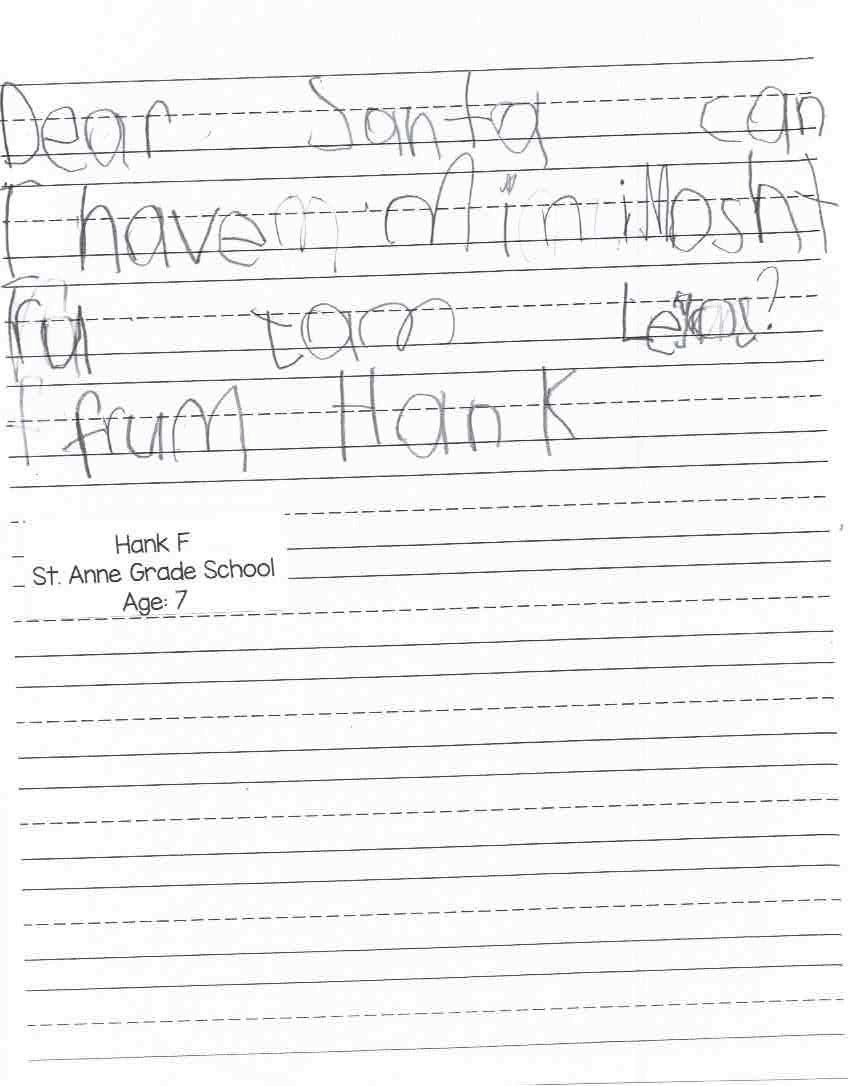 Dear Santa can
I have a Min iMosht
ful
frum Hank
Hank F
St. Anne Grade School
Age: 7